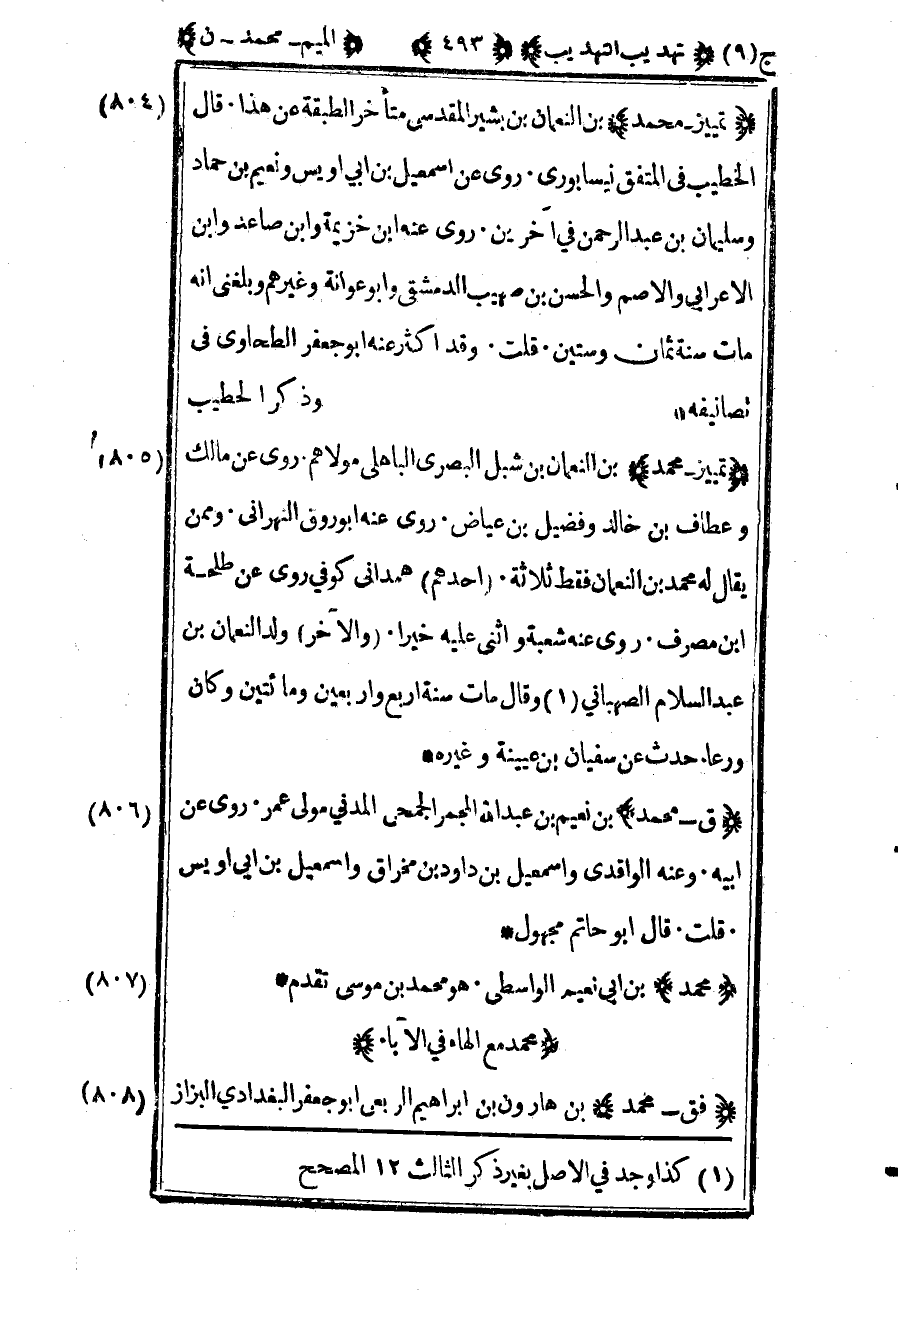 ج (٩) ﴿ تهذيب التهذيب ﴾ ﴿ ٤٩٣ ﴾ ﴿ الميم ـ محمد ـ ن ﴾
﴿ تمييز ـ محمد ﴾ بن النعمان بن بشير المقدسي متأخر الطبقة عن هذا · قال (٨٠٤)
الخطيب فى المتفق نيسابورى · روى عن اسمعيل بن ابي اويس ونعيم بن حماد
وسليمان بن عبدالرحمن في آخرين · روى عنه ابن خزيمة وابن صاعد وابن
الاعرابي والاصم والحسن بن صهيب الدمشقى وابوعوانة وغيرهم وبلغنى انه
مات سنة ثمان وستين · قلت · وقد اكثر عنه ابوجعفر الطحاوى فى
تصانيفه وذكر الخطيب
﴿ تمييز ـ محمد ﴾ بن النعمان بن شبل البصرى الباهلى مولاهم · روى عن مالك (٨٠٥)
وعطاف بن خالد وفضيل بن عياض · روى عنه ابوروق النهرانى · وممن
يقال له محمد بن النعمان فقط ثلاثة · (احدهم) همدانى كوفي روى عن طلحة
ابن مصرف · روى عنه شعبة واثنى عليه خيرا · (والآخر) ولد النعمان بن
عبدالسلام الصهباني (١) وقال مات سنة اربع واربعين ومائتين وكان
ورعا · حدث عن سفيان بن عيينة وغيره*
﴿ ق ـ محمد ﴾ بن نعيم بن عبدالله المجمر الجمحى المدني مولى عمر · روى عن (٨٠٦)
ابيه · وعنه الواقدى واسمعيل بن داود بن مخراق واسمعيل بن ابى اويس
· قلت · قال ابو حاتم مجهول*
﴿ محمد ﴾ بن ابي نعيم الواسطى · هو محمد بن موسى تقدم* (٨٠٧)
﴿ محمد مع الهاء في الآباء ﴾
﴿ فق ـ محمد ﴾ بن هارون بن ابراهيم الربعى ابوجعفر البغدادي البزاز (٨٠٨)
(١) كذا وجد في الاصل بغير ذكر الثالث ١٢ المصحح